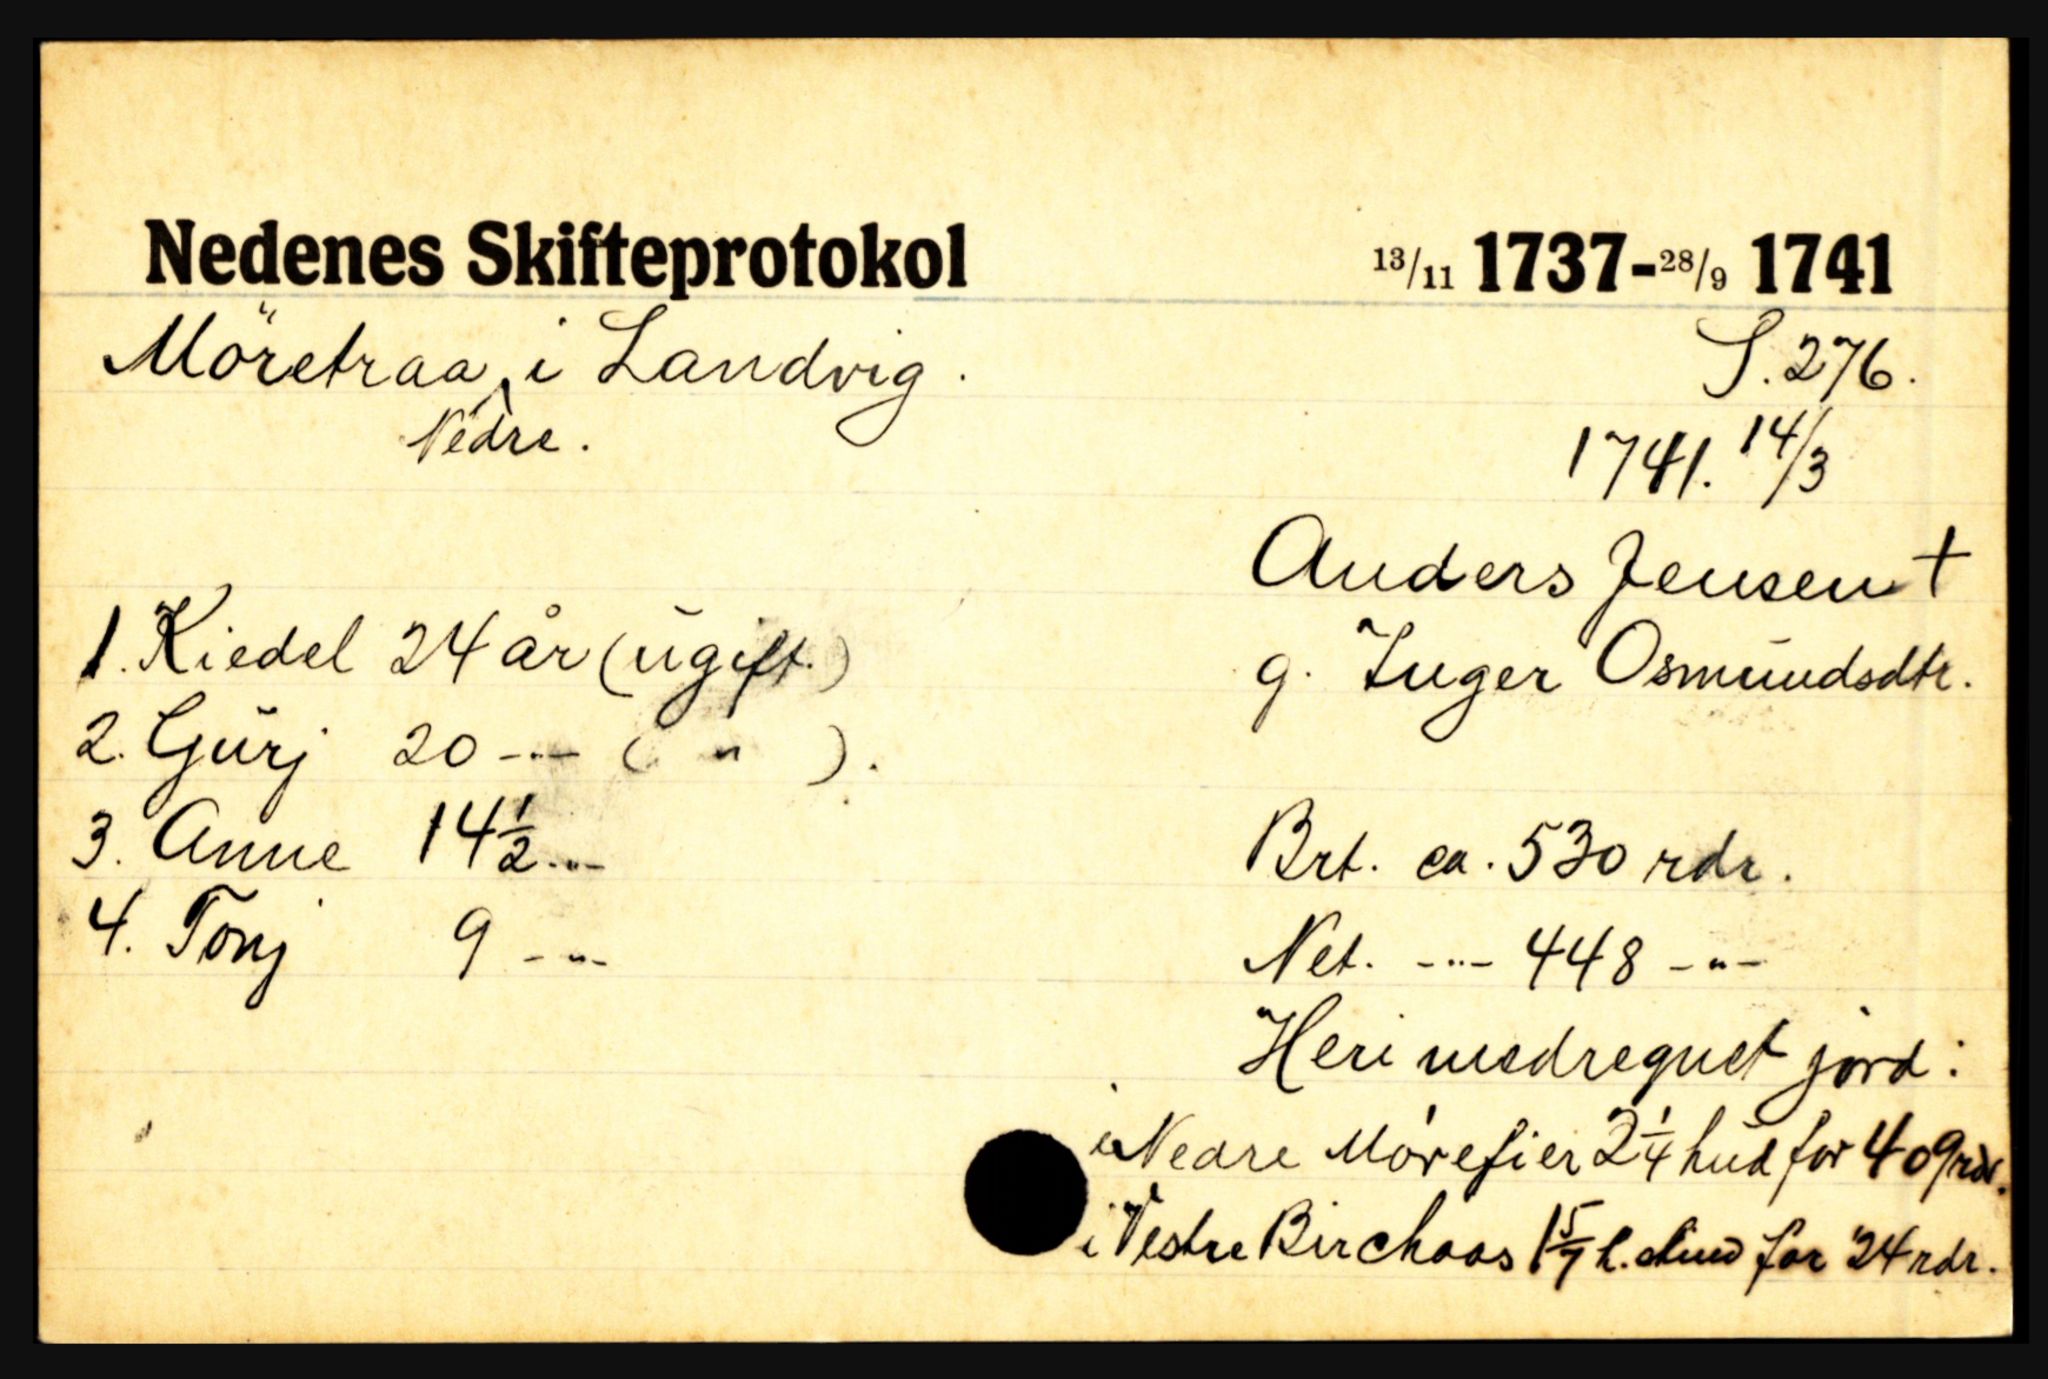 Nedenes Skifteprotokol 13/11 1737-28/9 1741
Möretraa, i Landvig.
Nedre.
S. 276.
1741. 14/3
Anders Jensen †
g. Inger Osmŭndsdtr.
1. Kiedel 24 år (ŭgift.)
2. Gŭrj 20 -"- ( " ).
3. Anne 14 1/2 -"-
4. Tonj 9 -"-
Brt. ca. 530 rdr.
Net. -"- 448 -"-
Heri medregnet jord:
i Nedre Mörefier 2 1/4 hŭd for 409 rdr.
i Vestre Birchaas 1 5/7 h. for 24 rdr.